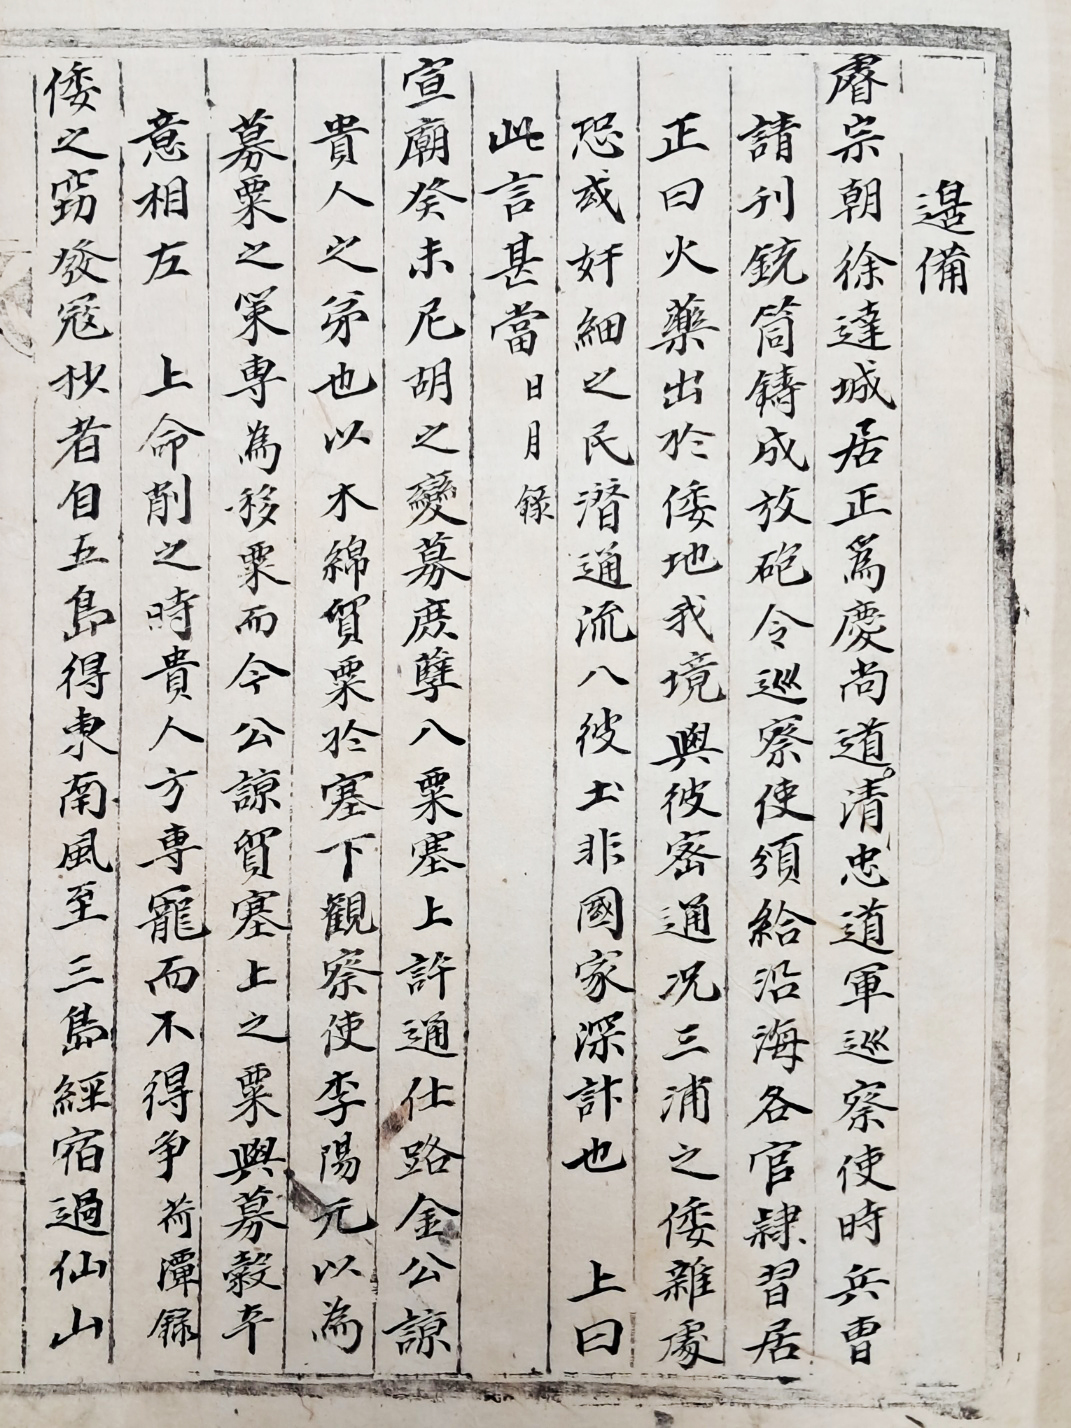 邊備
睿宗朝徐達城居正爲慶尚道淸忠道軍巡察使時兵曹
請刊銃筒鑄成放砲令巡察使頒給沿海各官隷習居
正曰火藥出於倭地我境與彼密通况三浦之倭雜處
恐或奸細之民潛通流八彼土非國家深計也 上曰
此言甚當日月錄
宣廟癸未尼胡之變募庶孽八粟塞上許通仕路金公諒
貴人之弟也以木綿貿粟於塞下觀察使李陽元以為
募粟之策専為移粟而今公諒貿塞上之粟與募穀本
意相左 上命削之時貴人方専寵而不得争荷潭錄
倭之窃發寇抄者自五島得東南風至三島經宿過仙山